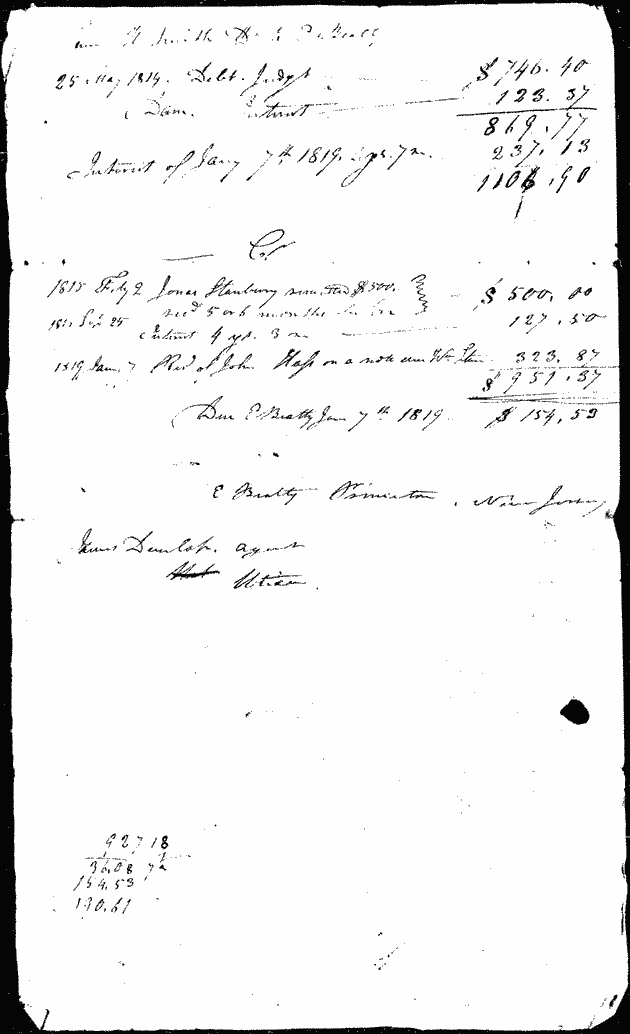 H Smith Dr to E Beatty
25 May 1814. Debt. Judgt $746.40
Dam. Interest 123.37
869.77
Interest of Jany 7th 1819. yr. 7 m. 237.13
1106.90
Cr
1815 Feby 2 Jonas Stanbury remitted $500. $500.00
recd 5 or 6 months
Sep 25 Interest 4 yr. 3 m 127.50
1819 Jany 7 Recd of John Hass on a note 323.87
$951.37
Due E Beatty Jan 7th 1819 $154.53
E Beatty Princeton, New Jersey
James Dunlap. agent
Utica
927 18
36.08
154.53
190.61